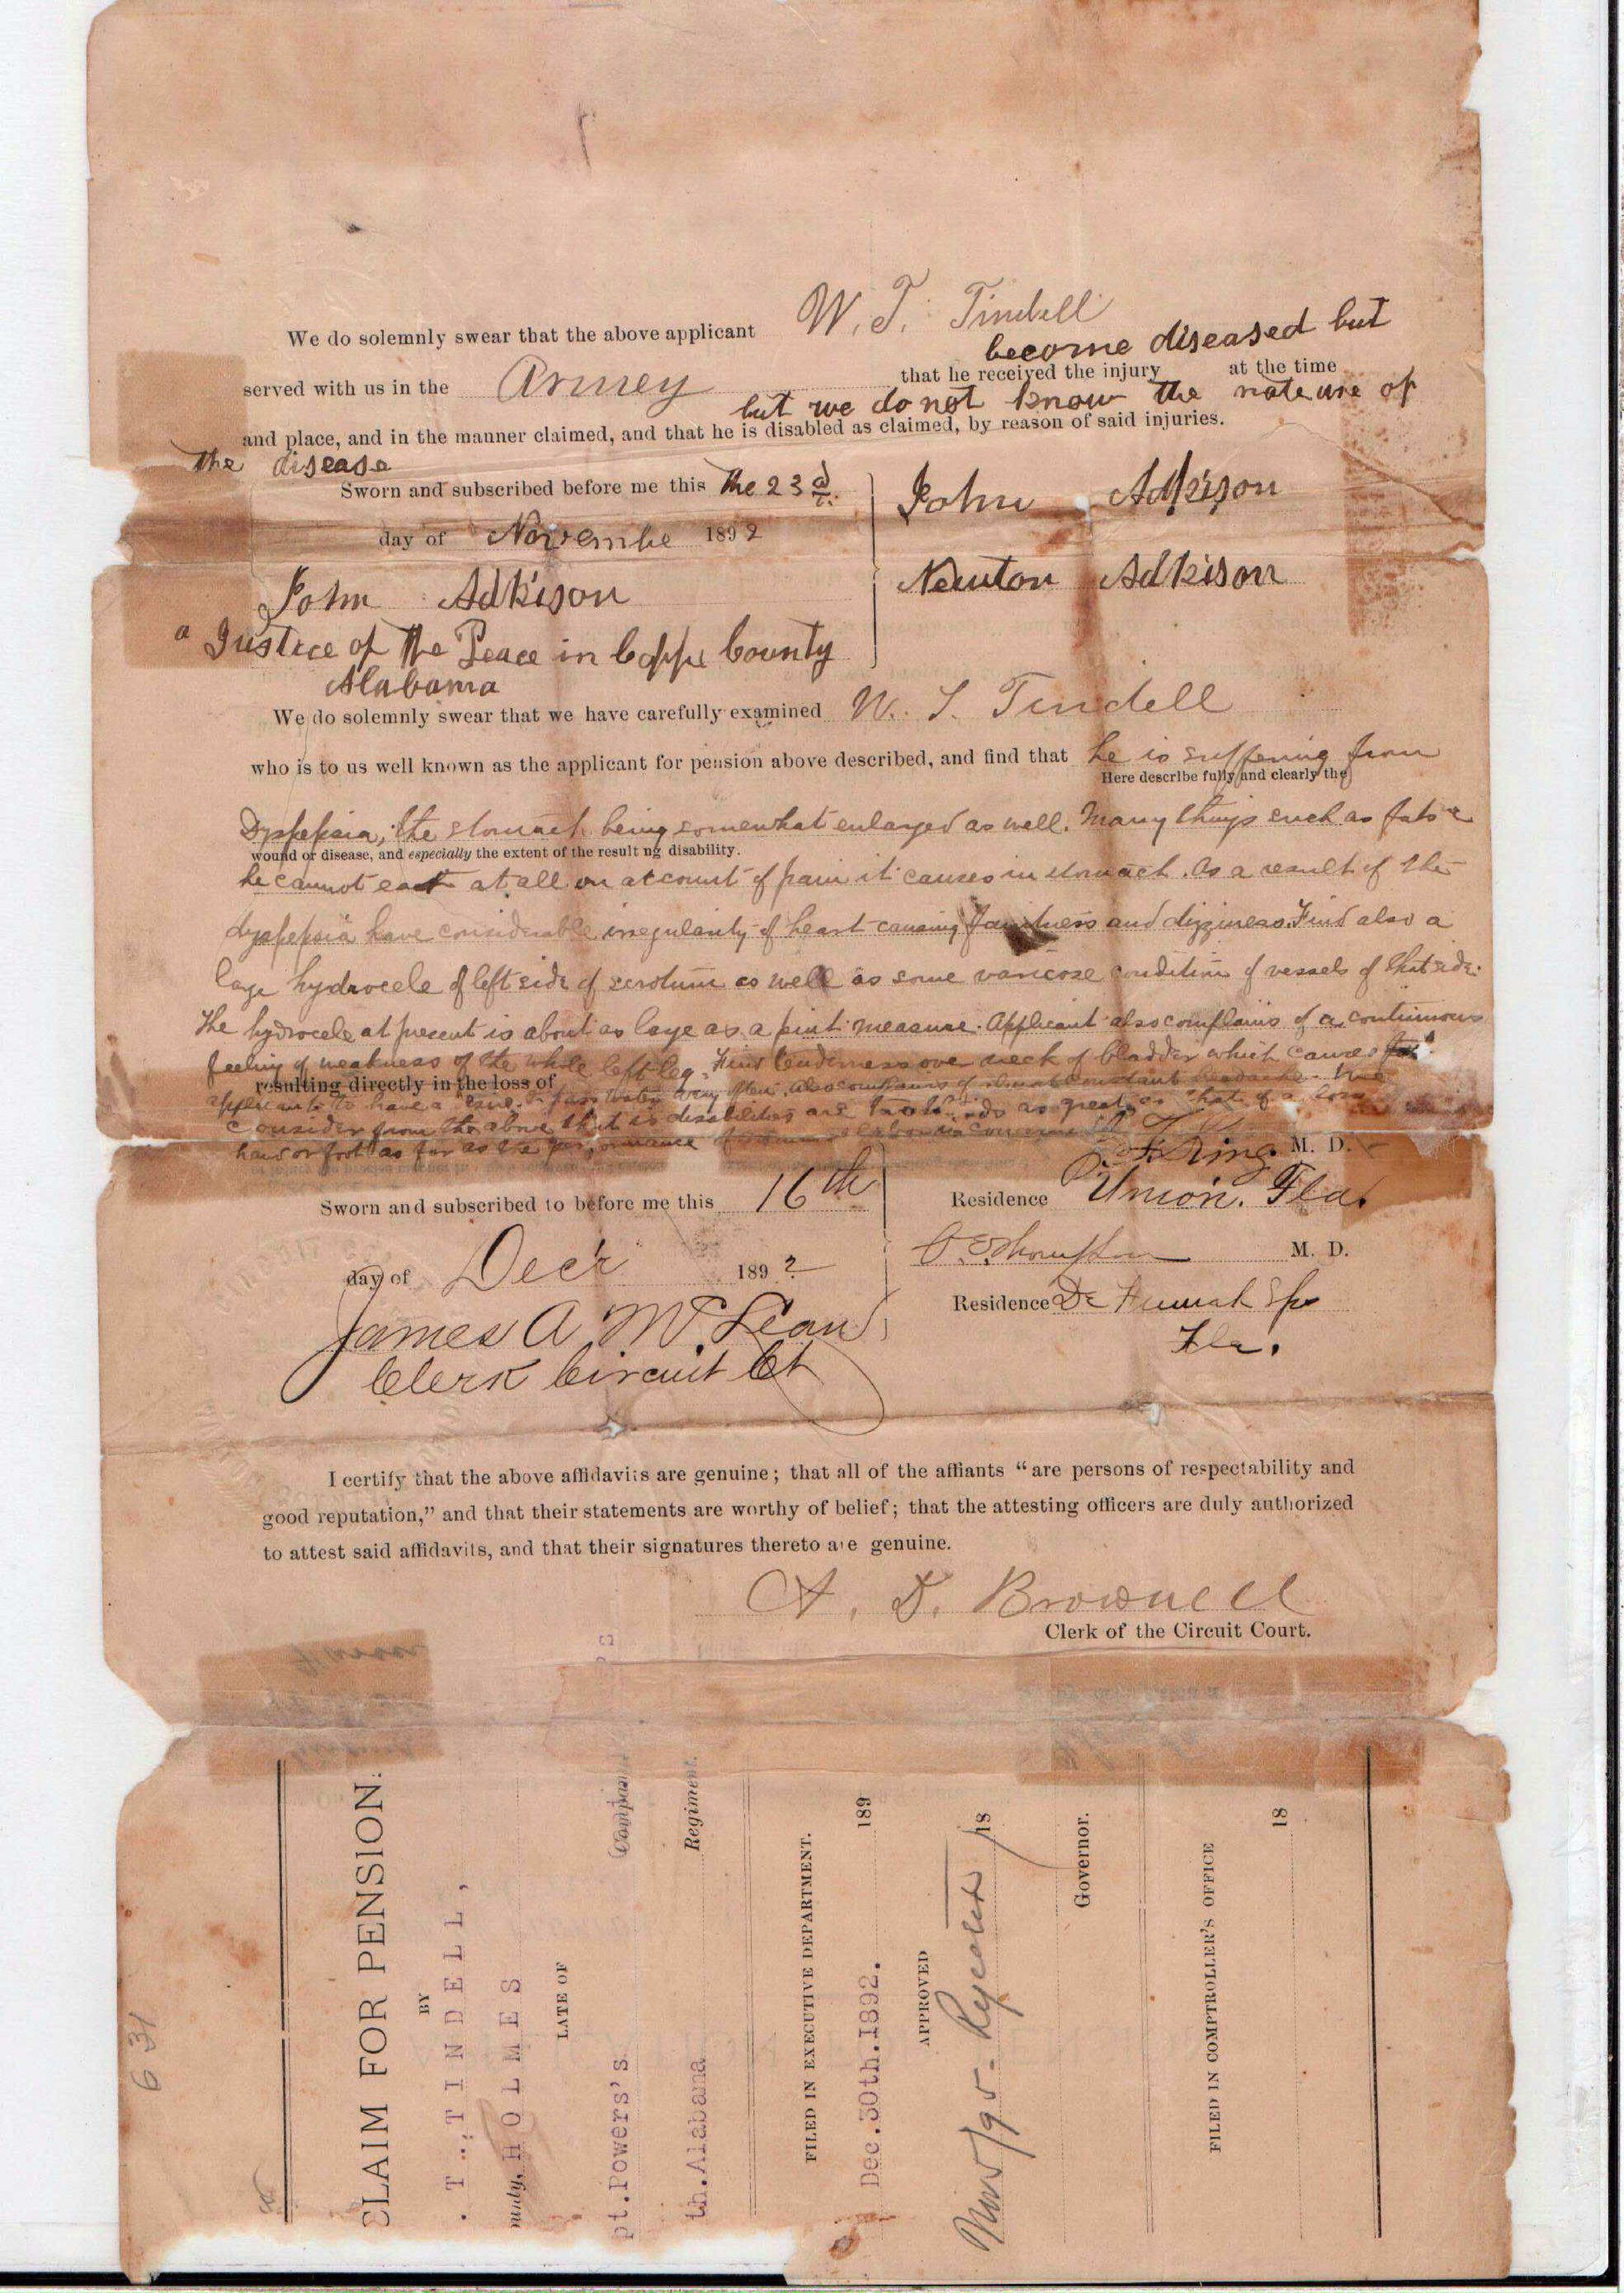 We do solemnly swear that the above applicant W. T. Tindell
become diseased but
served with us in the Armey that he received the injury at the time
but we do not know the nateure of
and place, and in the manner claimed, and that he is disabled as claimed, by reason of said injuries.
the disease
Sworn and subscribed before me this the 23d
day of Novembe 1892
John Adkison
Newton Adkison
John Adkison
a Justice of the Peace in Coffe County
Alabama
We do solemnly swear that we have carefully examined W. T. Tindell
who is to us well known as the applicant for pension above described, and find that he is suffering from
Here describe fully and clearly the
Dyspepsia, the stomach being somewhat enlarged as well. Many things such as fats
wound or disease, and especially the extent of the result ng disability.
he cannot eat at all on account of pain it causes in stomach. As a result of the
dyspepsia have considerable irregularity of heart causing faintness and dizziness. Find also a
large hydrocele of left side of scrotum as well as some varicose condition of vessels of that side.
The hydrocele at present is about as large as a pint measure. Applicant also complains of a continuous
feeling of weakness of the whole left leg. Find tenderness over neck of bladder which causes
resulting directly in the loss of
applicant to have a desire to pass water very often. Also complains of almost constant headache. We
consider from the above that is disabilities are as great as that of a loss
hand or foot as far as the performance of labor is concerned
King M. D.
Sworn and subscribed to before me this 16th
Residence Union. Fla.
day of Decr 1892
Thompson M. D.
Residence De Funiak Sps
Fla.
James A McLean
Clerk Circuit Ct
I certify that the above affidavits are genuine; that all of the affiants "are persons of respectability and
good reputation," and that their statements are worthy of belief; that the attesting officers are duly authorized
to attest said affidavits, and that their signatures thereto are genuine.
A. D. Brownell
Clerk of the Circuit Court.
631
CLAIM FOR PENSION.
BY
. T. TINDELL,
unty, HOLMES
LATE OF
pt. Powers's Company
th. Alabama Regiment.
FILED IN EXECUTIVE DEPARTMENT.
Dec. 30th. 1892. 189
APPROVED
18
Governor.
FILED IN COMPTROLLER'S OFFICE
18